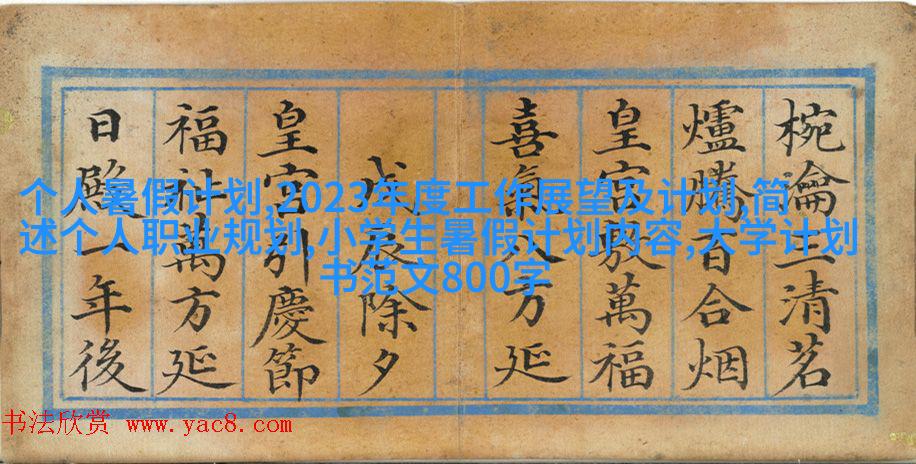 椀瀹三清茗
爐騰百合烟
皇宮敷萬福
喜氣八方延
戊辰除夕
皇宮引慶節
福祉萬方延
日一年後
个人暑假计划,2023年度工作展望及计划,简
述个人职业规划,小学生暑假计划内容,大学计划
书范文800字
书法欣赏 www.yac8.com